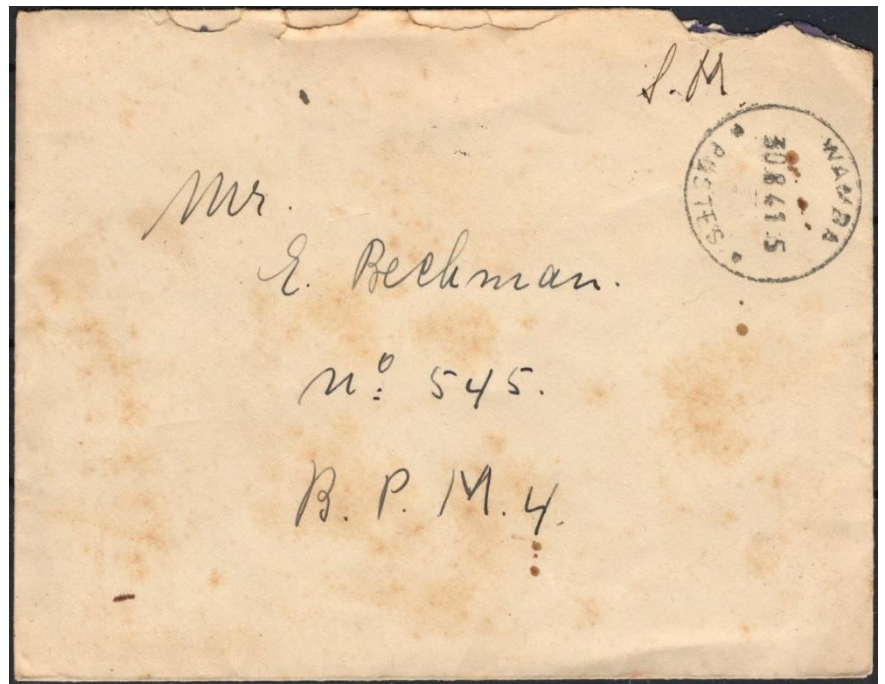 S.M
WAMBA
30.8.41.5
* POSTES *
Mr.
E. Beckman.
Nº 545.
B. P. M. 4.